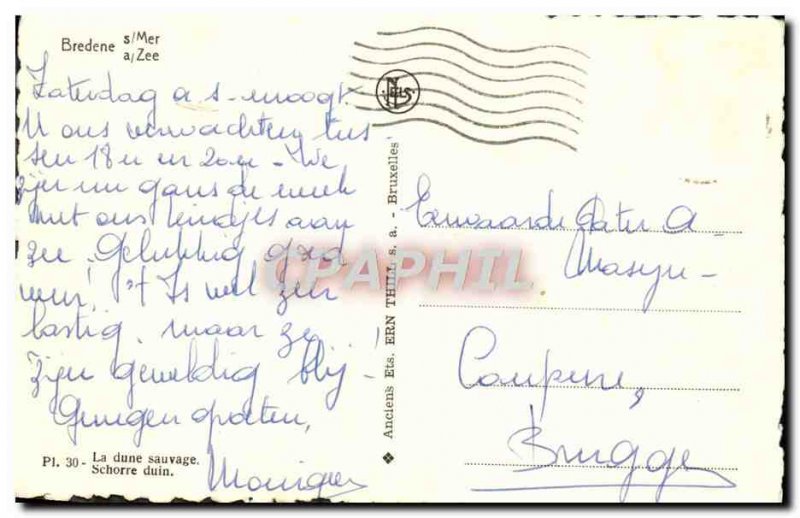 Bredene s/Mer
a/Zee
Zaterdag a.s. moogt
U ons verwachten tus
sen 18 u en 20 u - We
zijn nu gans de week
met ons kindjes aan
zee. Gelukkig goed
weer! 't Is wel zeer
lastig, maar ze
zijn geweldig blij!
Genegen groeten,
Pl. 30 - La dune sauvage.
Schorre duin.
NELS
Anciens Ets. ERN THILL s. a. - Bruxelles
CPAPHIL
Eerwaarde Pater A-
Coupure,
Brugge